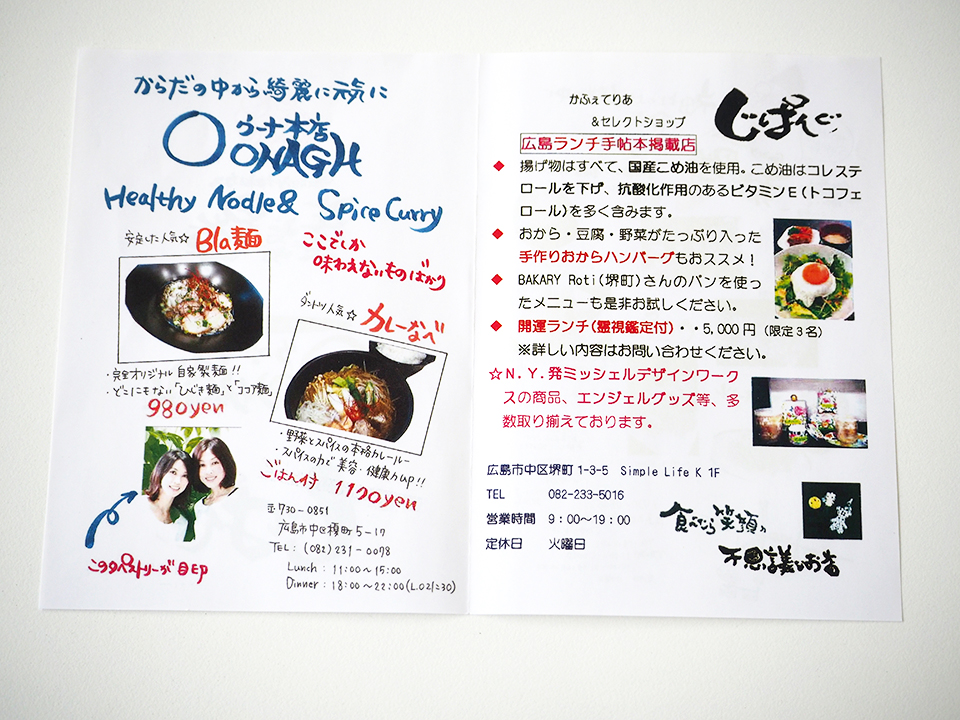 からだの中から綺麗に元気に
ウーナ本店
OONAGH
Healthy Nodle& Spice Curry
安定した人気☆ Bla麺
ここでしか
味わえないものばかり
ダントツ人気☆ カレーなべ
・完全オリジナル自家製麺!!
・どこにもない「ひじき麺」と「ココア麺」
980yen
・野菜とスパイスの本格カレールー
・スパイスの力で美容・健康力up!!
ごはん付 1170yen
このタペストリーが目印
〒730-0851
広島市中区榎町5-17
TEL:(082)231-0078
Lunch : 11:00~15:00
Dinner : 18:00~22:00(L.O21:30)
かふぇてりあ
&セレクトショップ
じぱんぐ
広島ランチ手帖本掲載店
◆ 揚げ物はすべて、国産こめ油を使用。こめ油はコレステ
ロールを下げ、抗酸化作用のあるビタミンE(トコフェ
ロール)を多く含みます。
◆ おから・豆腐・野菜がたっぷり入った
手作りおからハンバーグもおススメ!
◆ BAKARY Roti(堺町)さんのパンを使っ
たメニューも是非お試しください。
◆ 開運ランチ(霊視鑑定付)・・5,000円(限定3名)
※詳しい内容はお問い合わせください。
☆N.Y.発ミッシェルデザインワーク
スの商品、エンジェルグッズ等、多
数取り揃えております。
広島市中区堺町1-3-5 Simple Life K 1F
TEL 082-233-5016
営業時間 9:00~19:00
定休日 火曜日
食べたら笑顔の
不思議なお店